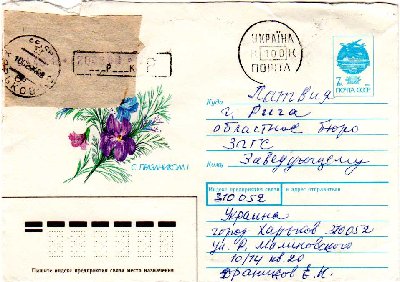 УКРАЇНА
100 К
ПОШТА
Р К
7к
ПОЧТА СССР
Куда Латвия
г. Рига
областное бюро
Загс
Кому Заведующему
С ПРАЗДНИКОМ!
Индекс предприятия связи и адрес отправителя
310052
Украина
город Харьков 310052
ул. Р. Малиновского
10/14 кв 20
Францисов Е. И.
Пишите индекс предприятия связи места назначения